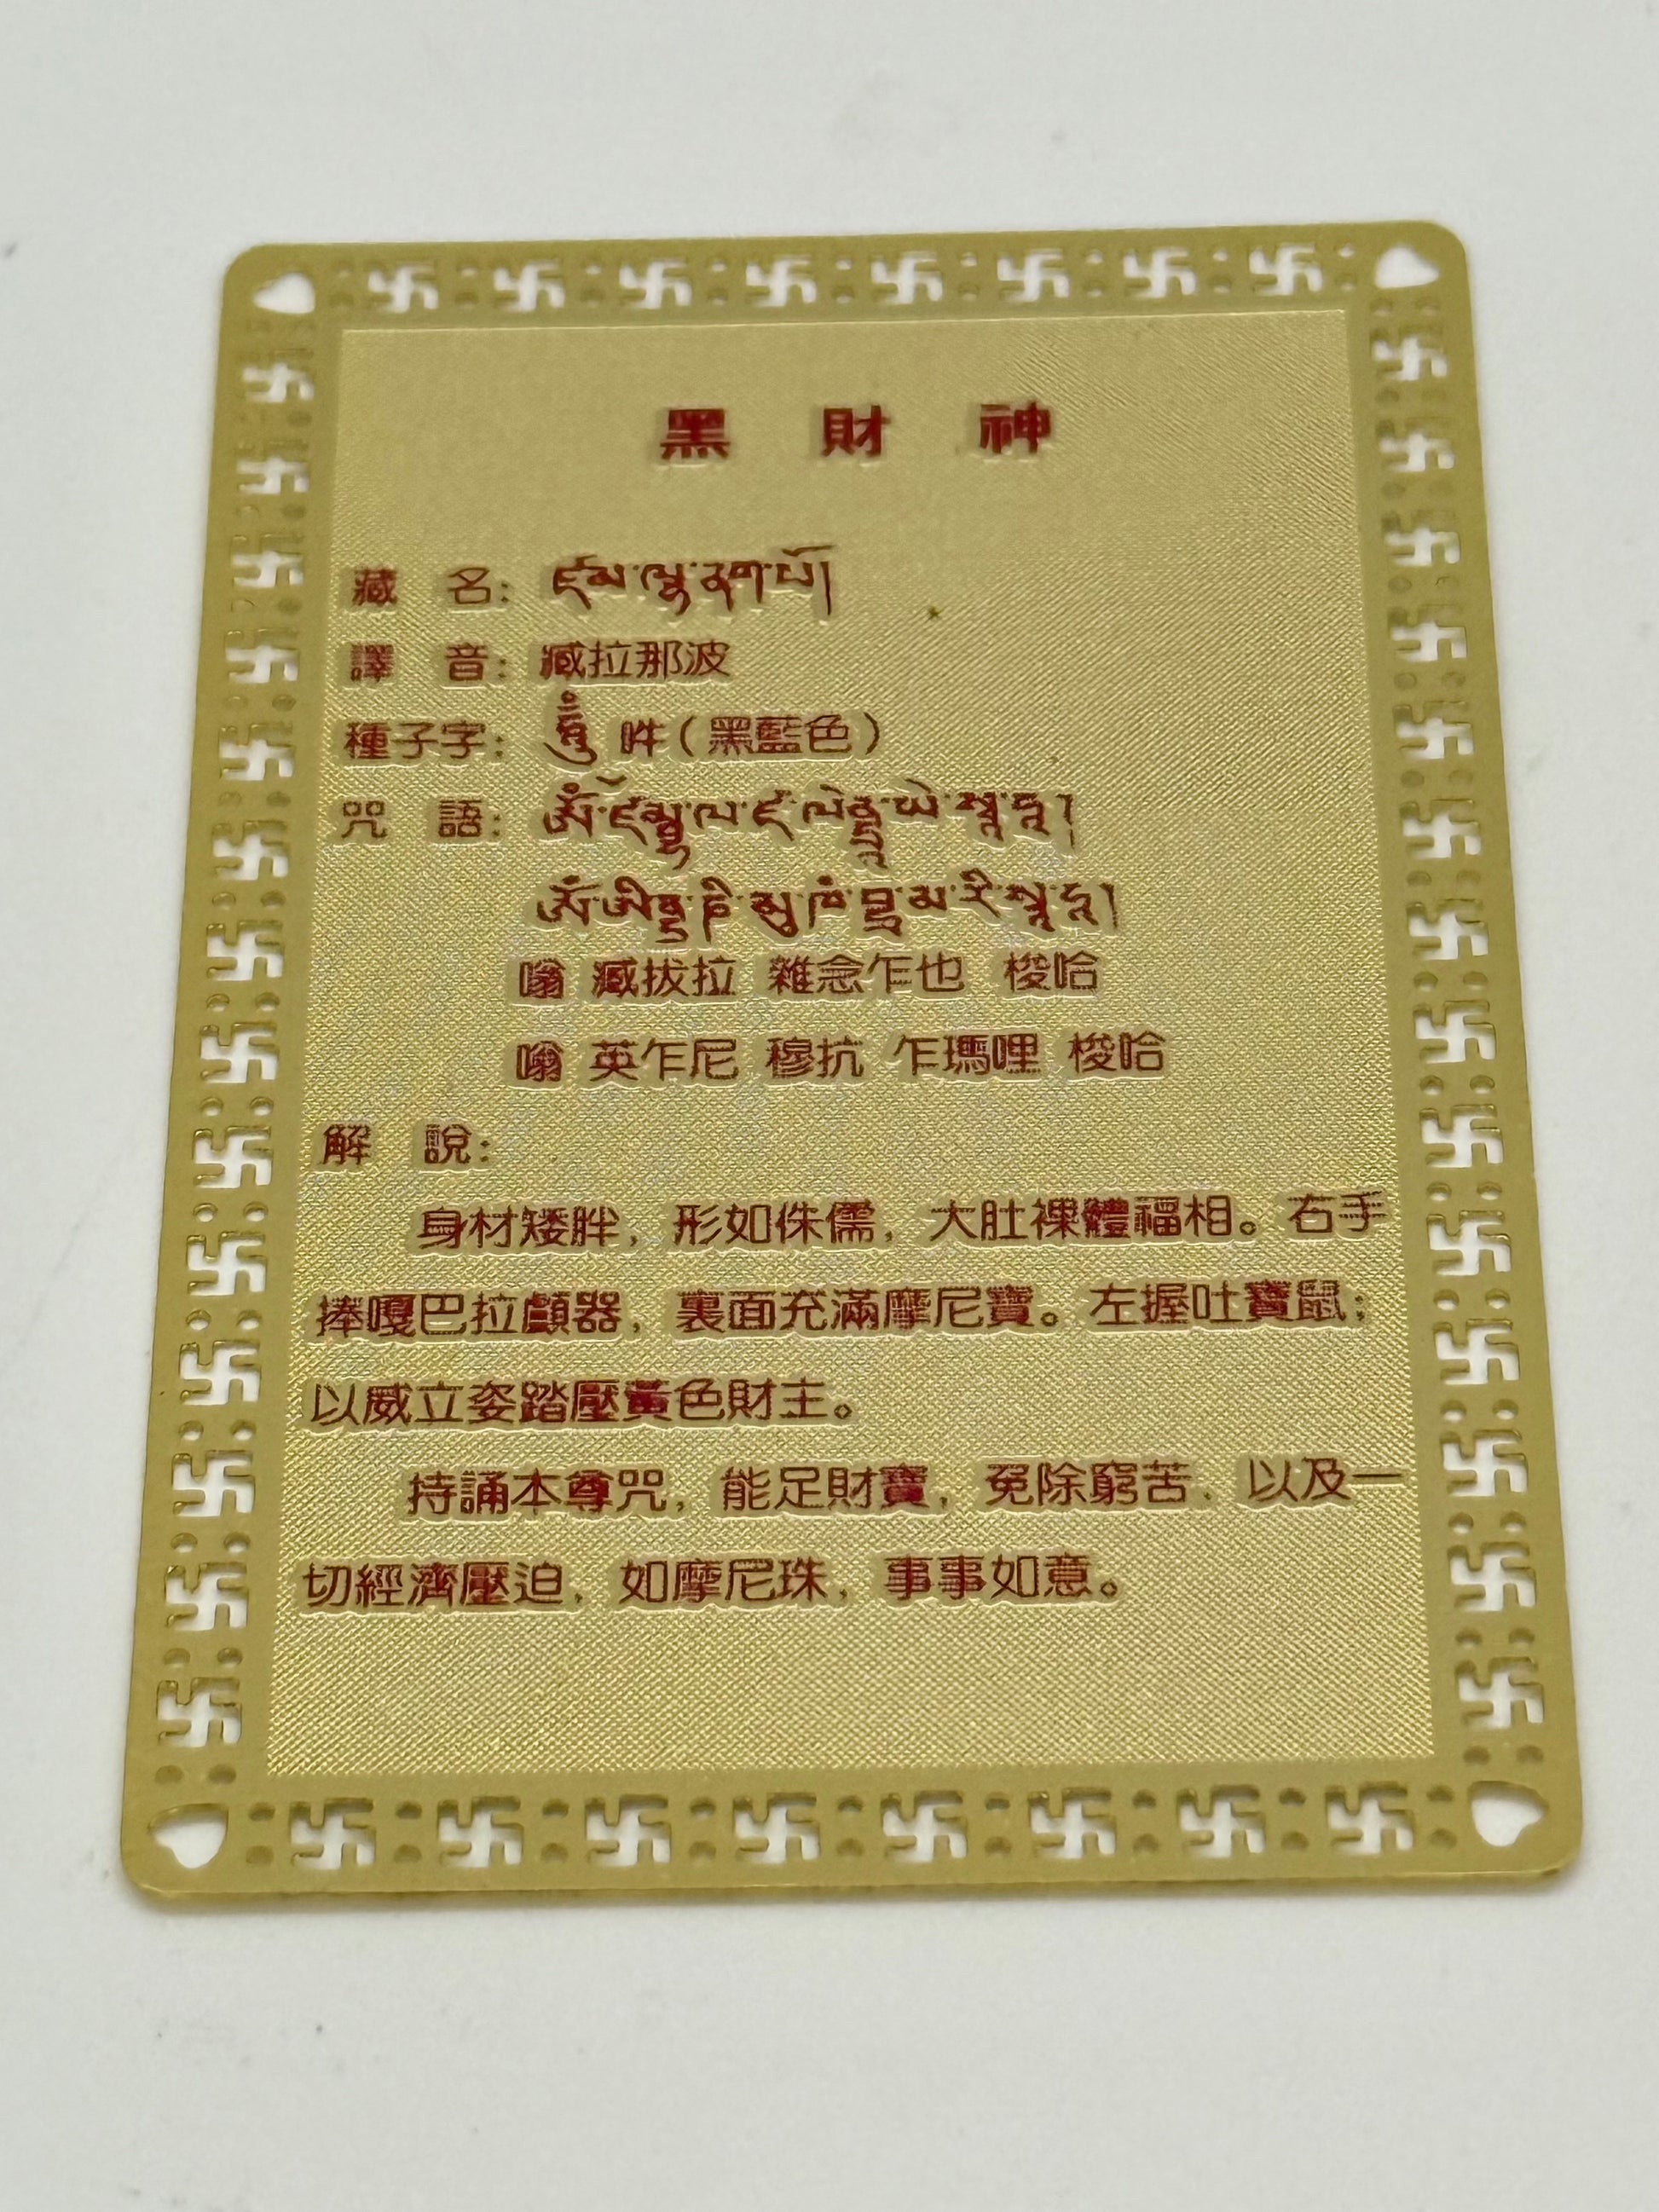 黑 財 神
藏 名：
譯 音：臧拉那波
種子字： 吽（黑藍色）
咒 語：
嗡 臧拔拉 雜念乍也 梭哈
嗡 英乍尼 穆抗 乍瑪哩 梭哈
解 說：
身材矮胖，形如侏儒，大肚裸體福相。右手
捧嘎巴拉顱器，裏面充滿摩尼寶。左握吐寶鼠；
以威立姿踏壓黃色財主。
持誦本尊咒，能足財寶，免除窮苦、以及一
切經濟壓迫，如摩尼珠，事事如意。